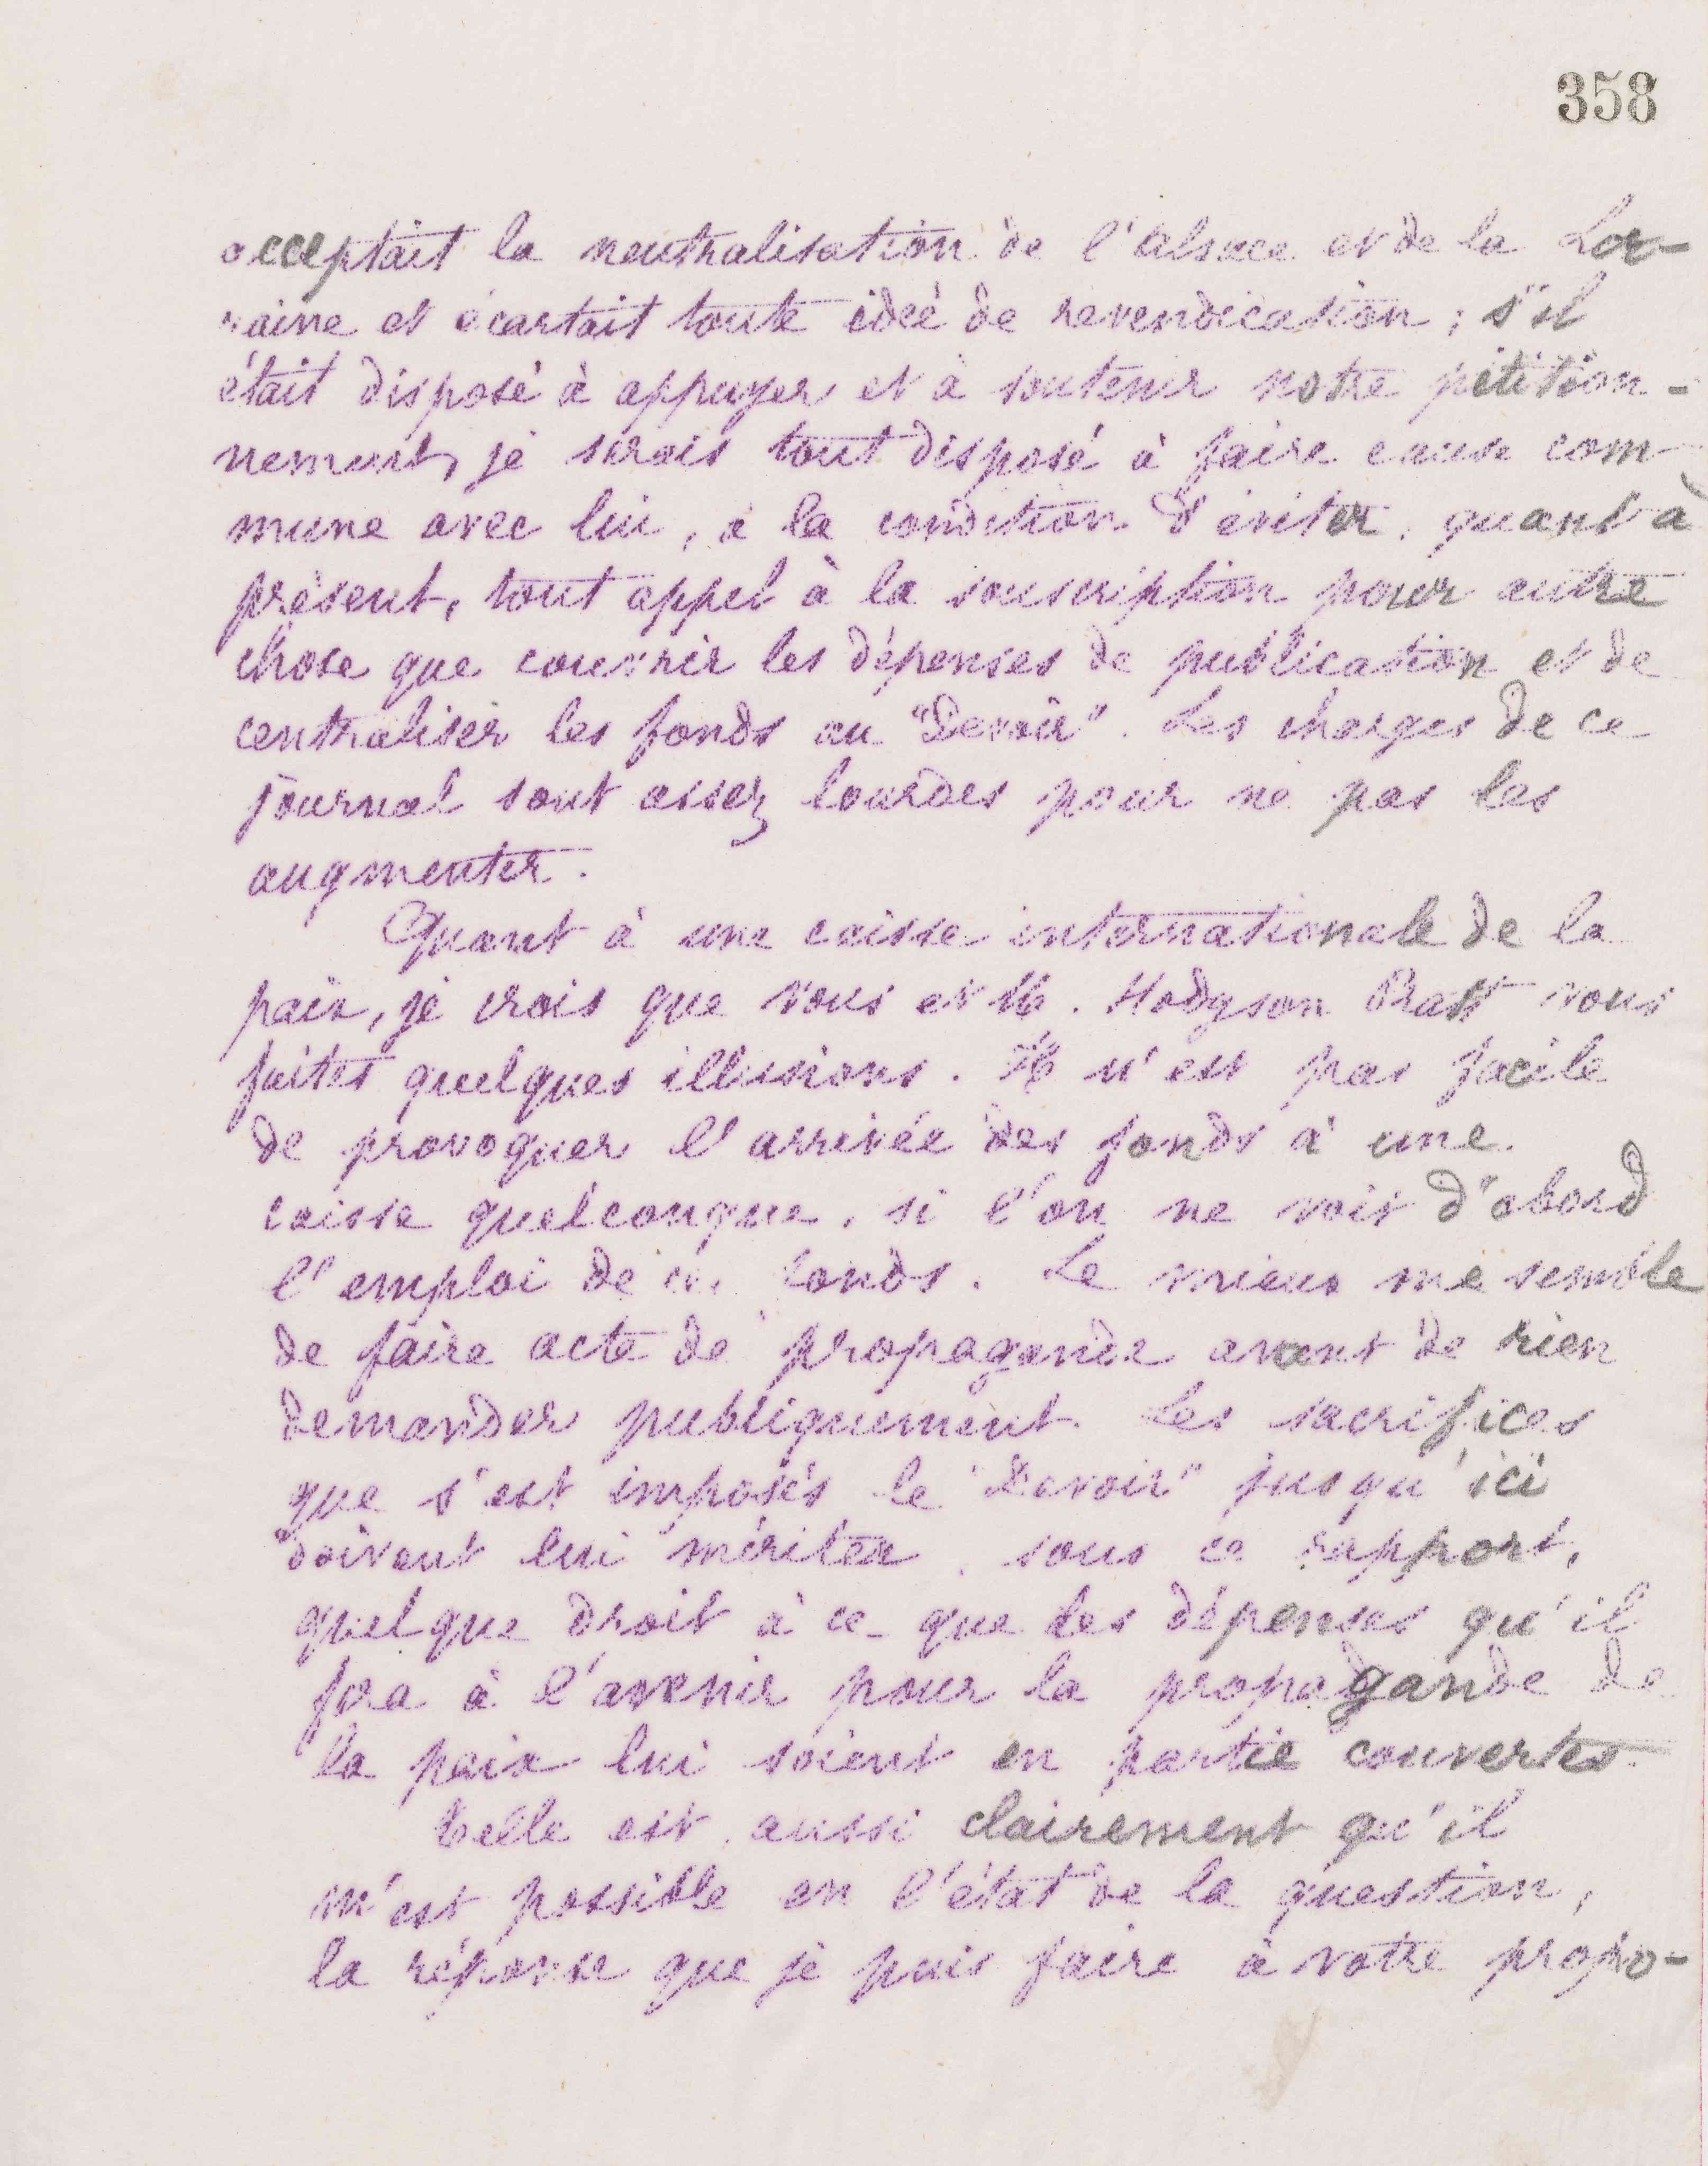 358
acceptait la neutralisation de l'Alsace et de la Lor-
raine et écartait toute idée de revendication ; s'il
était disposé à appuyer et à soutenir notre pétition-
nement, je serais tout disposé à faire cause com
mune avec lui, à la condition d'éviter, quant à
présent, tout appel à la souscription pour autre
chose que couvrir les dépenses de publication et de
centraliser les fonds au "Devoir". Les charges de ce
journal sont assez lourdes pour ne pas les
augmenter.
Quant à une caisse internationale de la
paix, je crois que vous et M. Hodgson Pratt vous
faites quelques illusions. Il n'est pas facile
de provoquer l'arrivée des fonds à une
caisse quelconque, si l'on ne voit d'abord
l'emploi de ces fonds. Le mieux me semble
de faire acte de propagande avant de rien
demander publiquement. Les sacrifices
que s'est imposés le "Devoir" jusqu'ici
doivent lui mériter, sous ce rapport,
quelque droit à ce que les dépenses qu'il
fera à l'avenir pour la propagande de
la paix lui soient en partie couvertes.
Telle est aussi clairement qu'il
m'est possible en l'état de la question,
la réponse que je puis faire à votre propo-